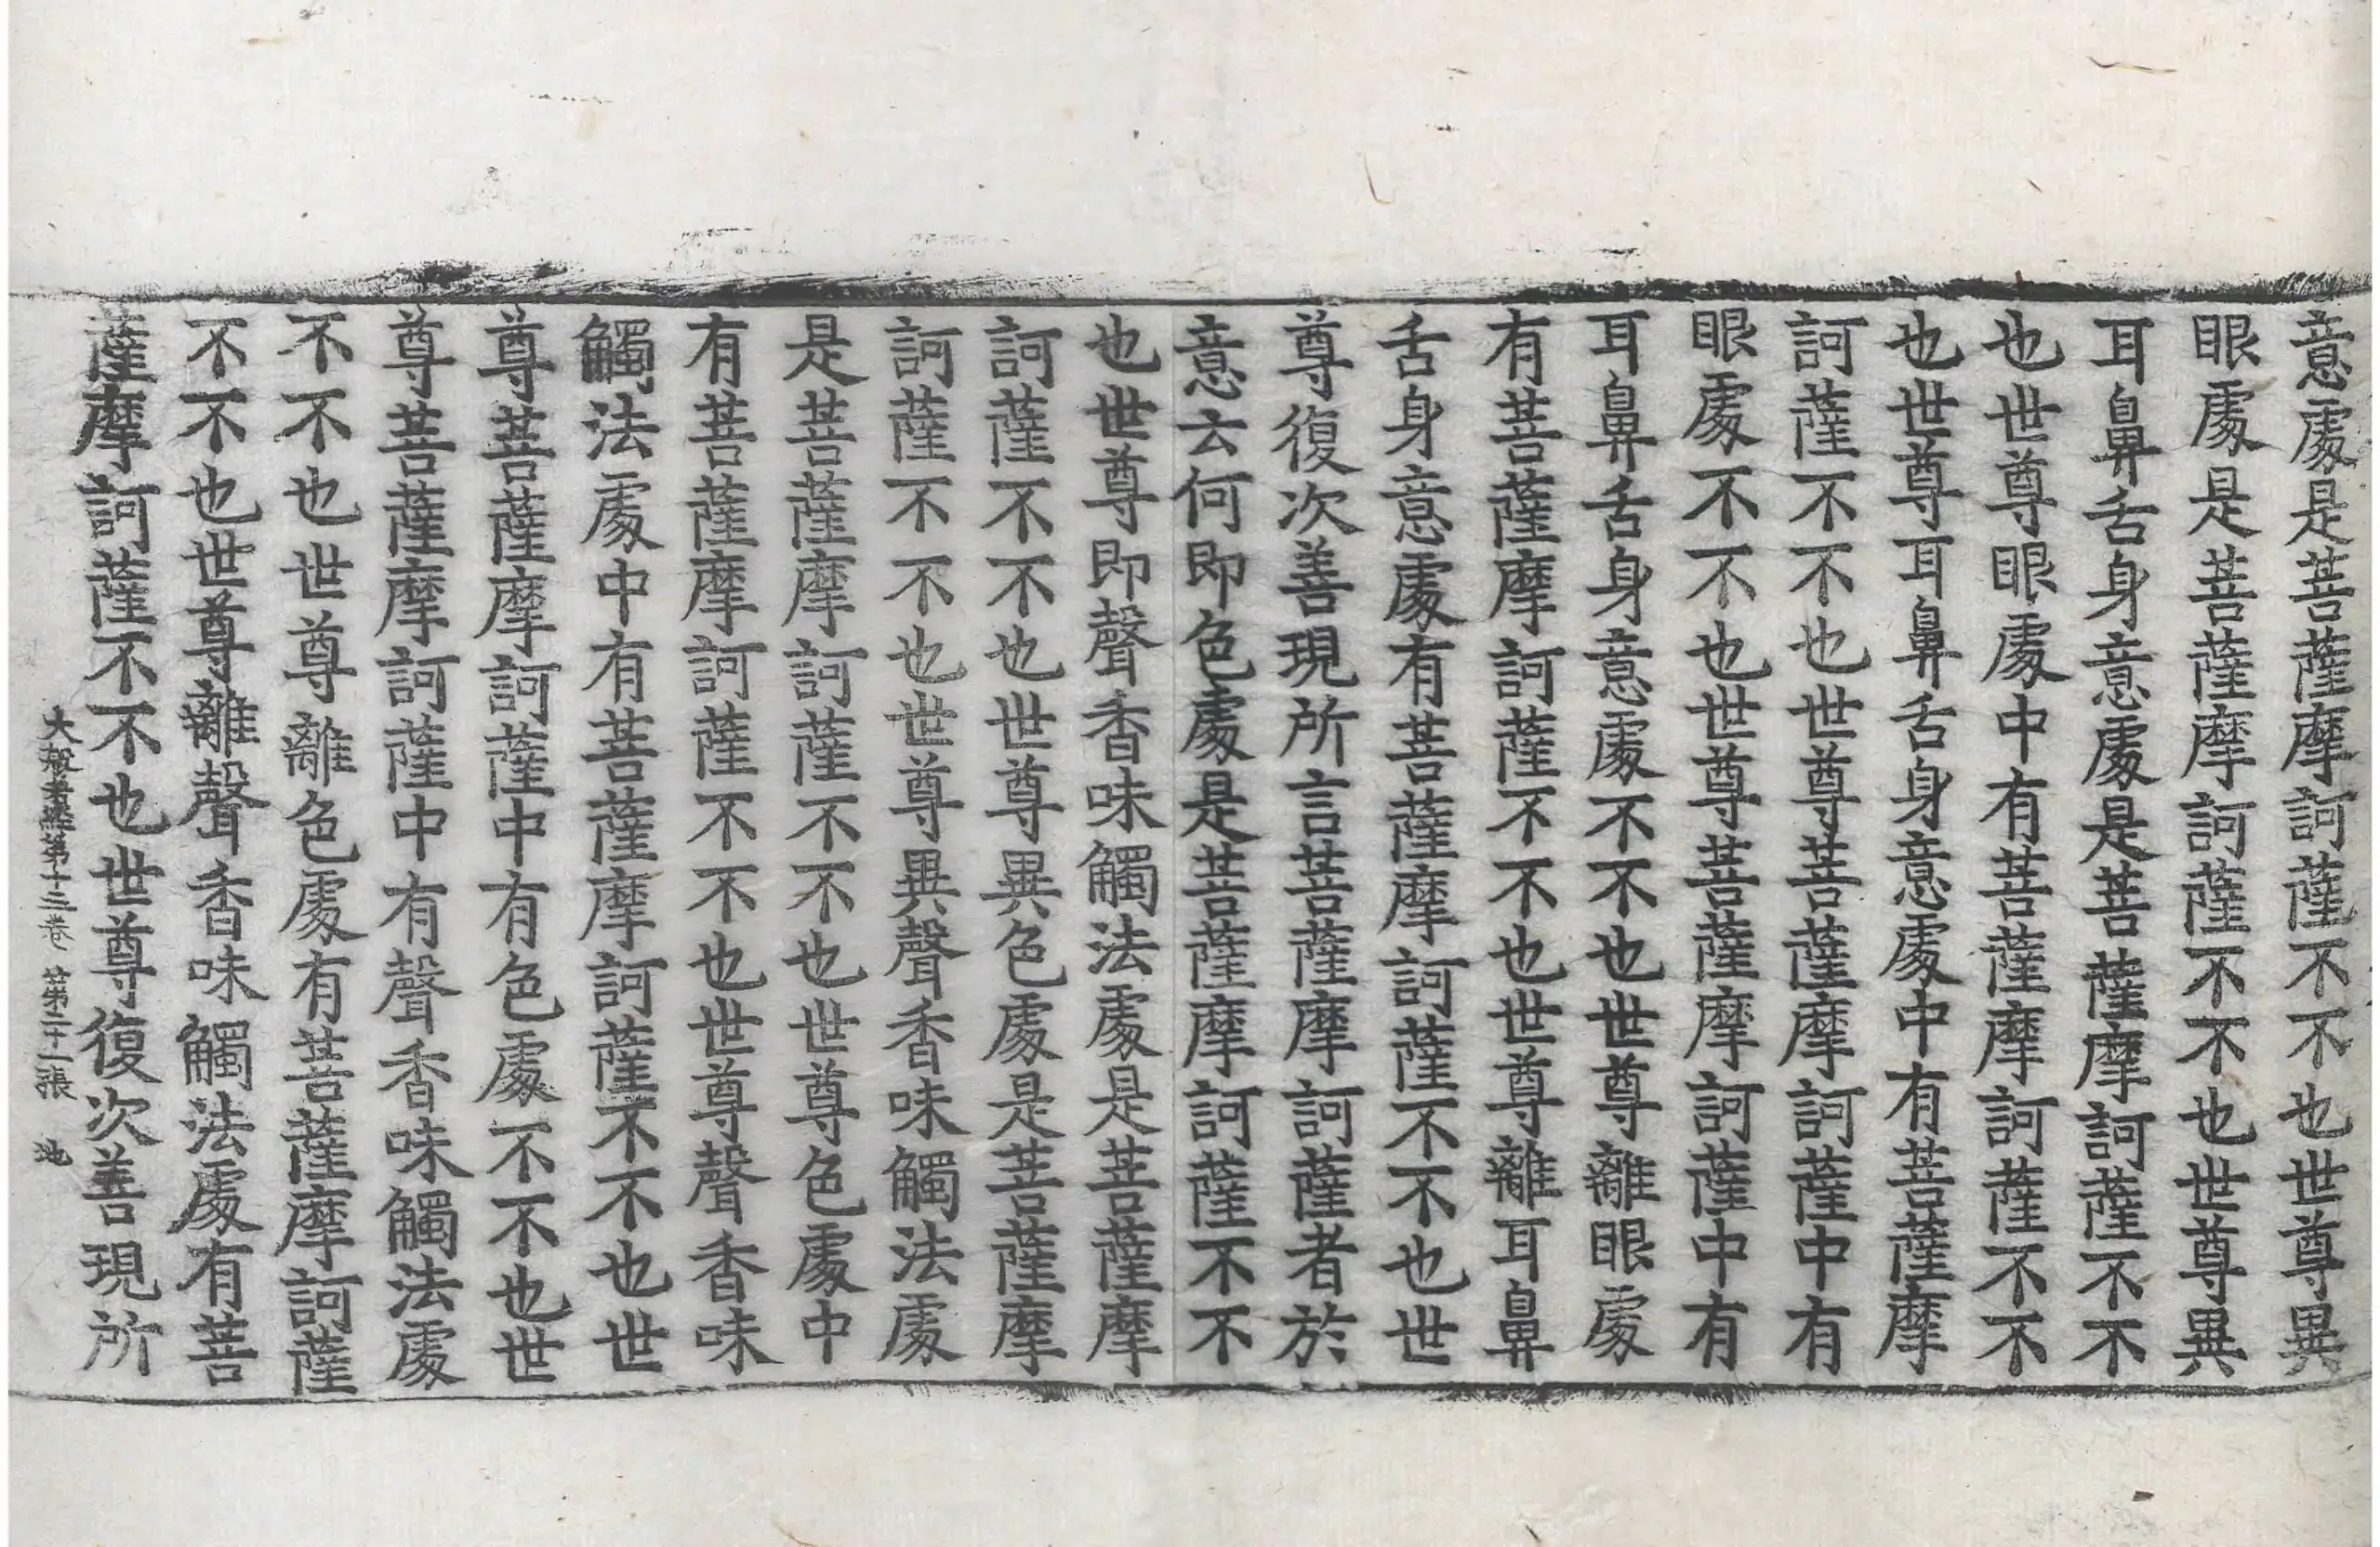 意處是菩薩摩訶薩不不也世尊異
眼處是菩薩摩訶薩不不也世尊異
耳鼻舌身意處是菩薩摩訶薩不不
也世尊眼處中有菩薩摩訶薩不不
也世尊耳鼻舌身意處中有菩薩摩
訶薩不不也世尊菩薩摩訶薩中有
眼處不不也世尊菩薩摩訶薩中有
耳鼻舌身意處不不也世尊離眼處
有菩薩摩訶薩不不也世尊離耳鼻
舌身意處有菩薩摩訶薩不不也世
尊復次善現所言菩薩摩訶薩者於
意云何即色處是菩薩摩訶薩不不
也世尊即聲香味觸法處是菩薩摩
訶薩不不也世尊異色處是菩薩摩
訶薩不不也世尊異聲香味觸法處
是菩薩摩訶薩不不也世尊色處中
有菩薩摩訶薩不不也世尊聲香味
觸法處中有菩薩摩訶薩不不也世
尊菩薩摩訶薩中有色處不不也世
尊菩薩摩訶薩中有聲香味觸法處
不不也世尊離色處有菩薩摩訶薩
不不也世尊離聲香味觸法處有菩
薩摩訶薩不不也世尊復次善現所
大般若經第十三卷 第二十二張